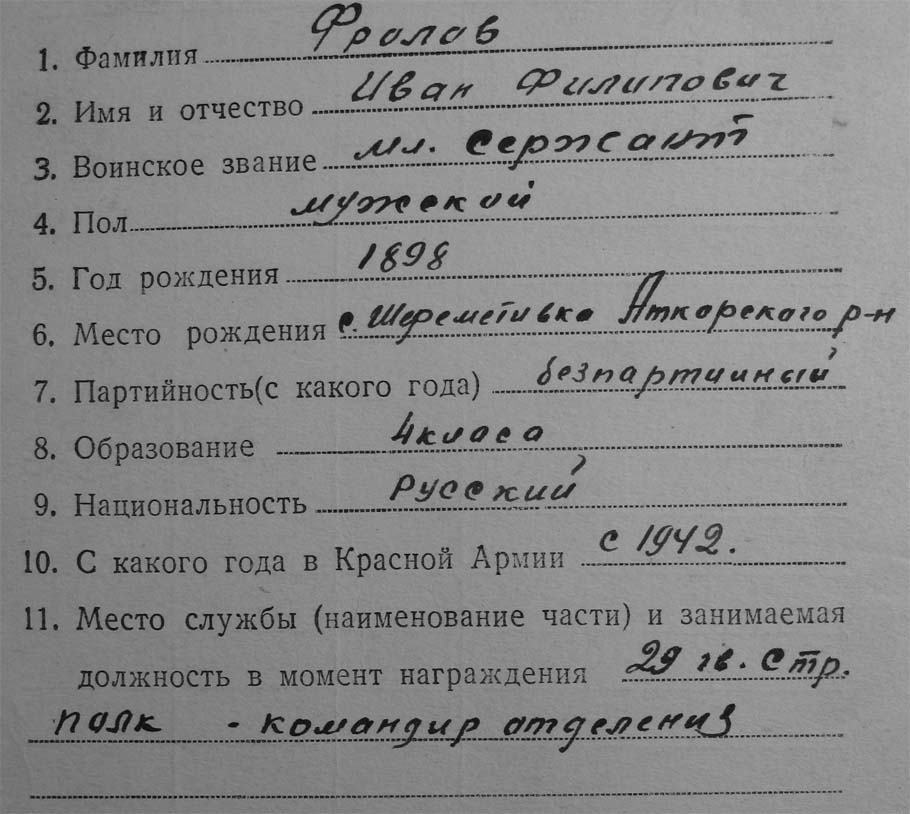 1. Фамилия Фролов
2. Имя и отчество Иван Филипович
3. Воинское звание мл. сержант
4. Пол мужской
5. Год рождения 1898
6. Место рождения с. Шереметивка Аткарского р-н
7. Партийность(с какого года) безпартииный
8. Образование 4 класа
9. Национальность Русский
10. С какого года в Красной Армии с 1942.
11. Место службы (наименование части) и занимаемая
должность в момент награждения 29 гв. Стр.
полк - командир отделения